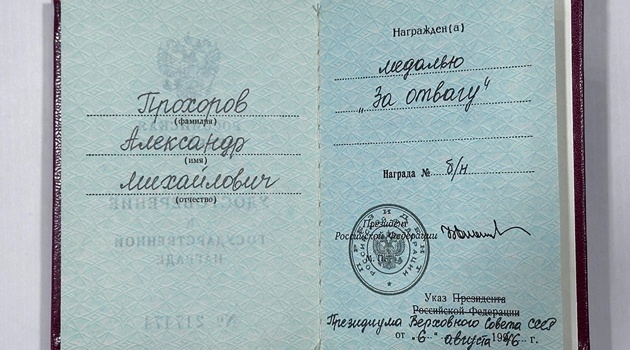 Прохоров
(фамилия)
Александр
(имя)
Михайлович
(отчество)
Награжден(а)
медалью
„За отвагу“
Награда № б/н
Президент
Российской Федерации
М. П.
Указ Президента
Российской Федерации
Президиума Верховного Совета СССР
от „6“ августа 1946 г.